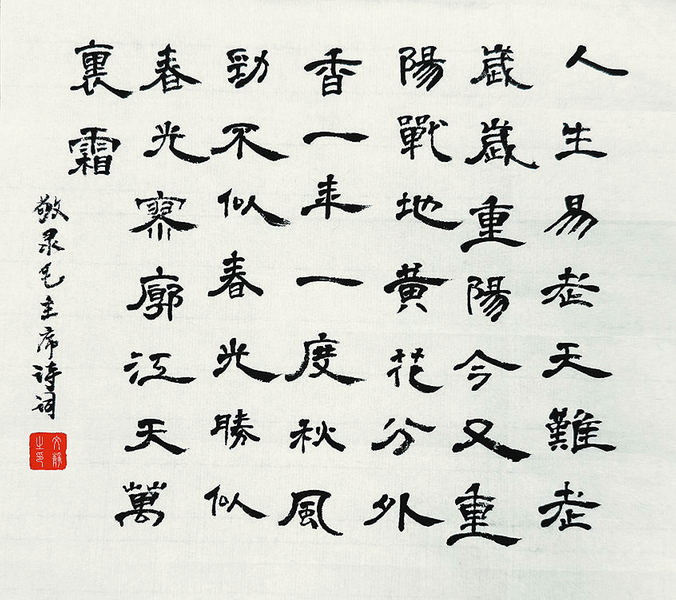 人生易老天難老
歲歲重陽今又重
陽戰地黃花分外
香一年一度秋風
勁不似春光勝似
春光寥廓江天萬
裏霜
敬录毛主席诗词